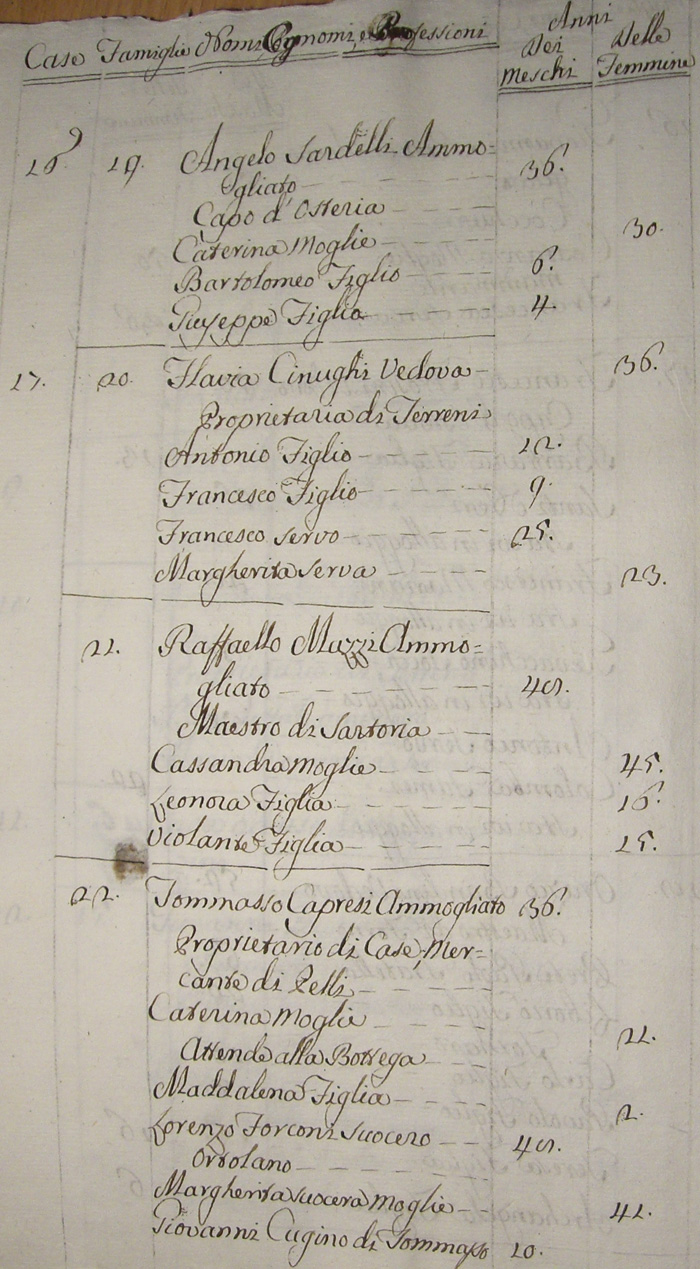 Case Famiglie Nomi, Cognomi, e Professioni Anni
Dei Meschi Delle Femmine
16 19. Angelo Sardelli Ammo=
gliato 36.
Capo d'Osteria
Caterina Moglie 30.
Bartolomeo Figlio 6.
Giuseppe Figlio 4.
17. 20. Flavia Cinughi Vedova 36.
Proprietaria di Terreni
Antonio Figlio 12.
Francesco Figlio 9.
Francesco servo 25.
Margherita serva 23.
21. Raffaello Mazzi Ammo=
gliato
Maestro di Sartoria
Cassandra Moglie 45.
Leonora Figlia 16.
Violante Figlia 15.
22. Tommasso Capresi Ammogliato 36.
Proprietario di Case, Mer=
cante di Pelli
Caterina Moglie 22.
Attende alla Bottega
Maddalena Figlia 2.
Lorenzo Forconi suocero
Ortolano
Margherita suocera moglie 42.
Giovanni Cugino di Tommasso 10.